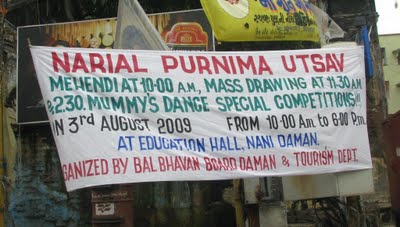 NARIAL PURNIMA UTSAV
MEHENDI AT 10·00 A.M, MASS DRAWING AT 11.30 AM
& 2.30. MUMMY'S DANCE SPECIAL COMPETITIONS!!!
ON 3rd AUGUST 2009 FROM 10·00 A.M. to 6·00 P.m.
AT EDUCATION HALL, NANI DAMAN.
ORGANIZED BY BAL BHAVAN BOARD DAMAN & TOURISM DEPT.